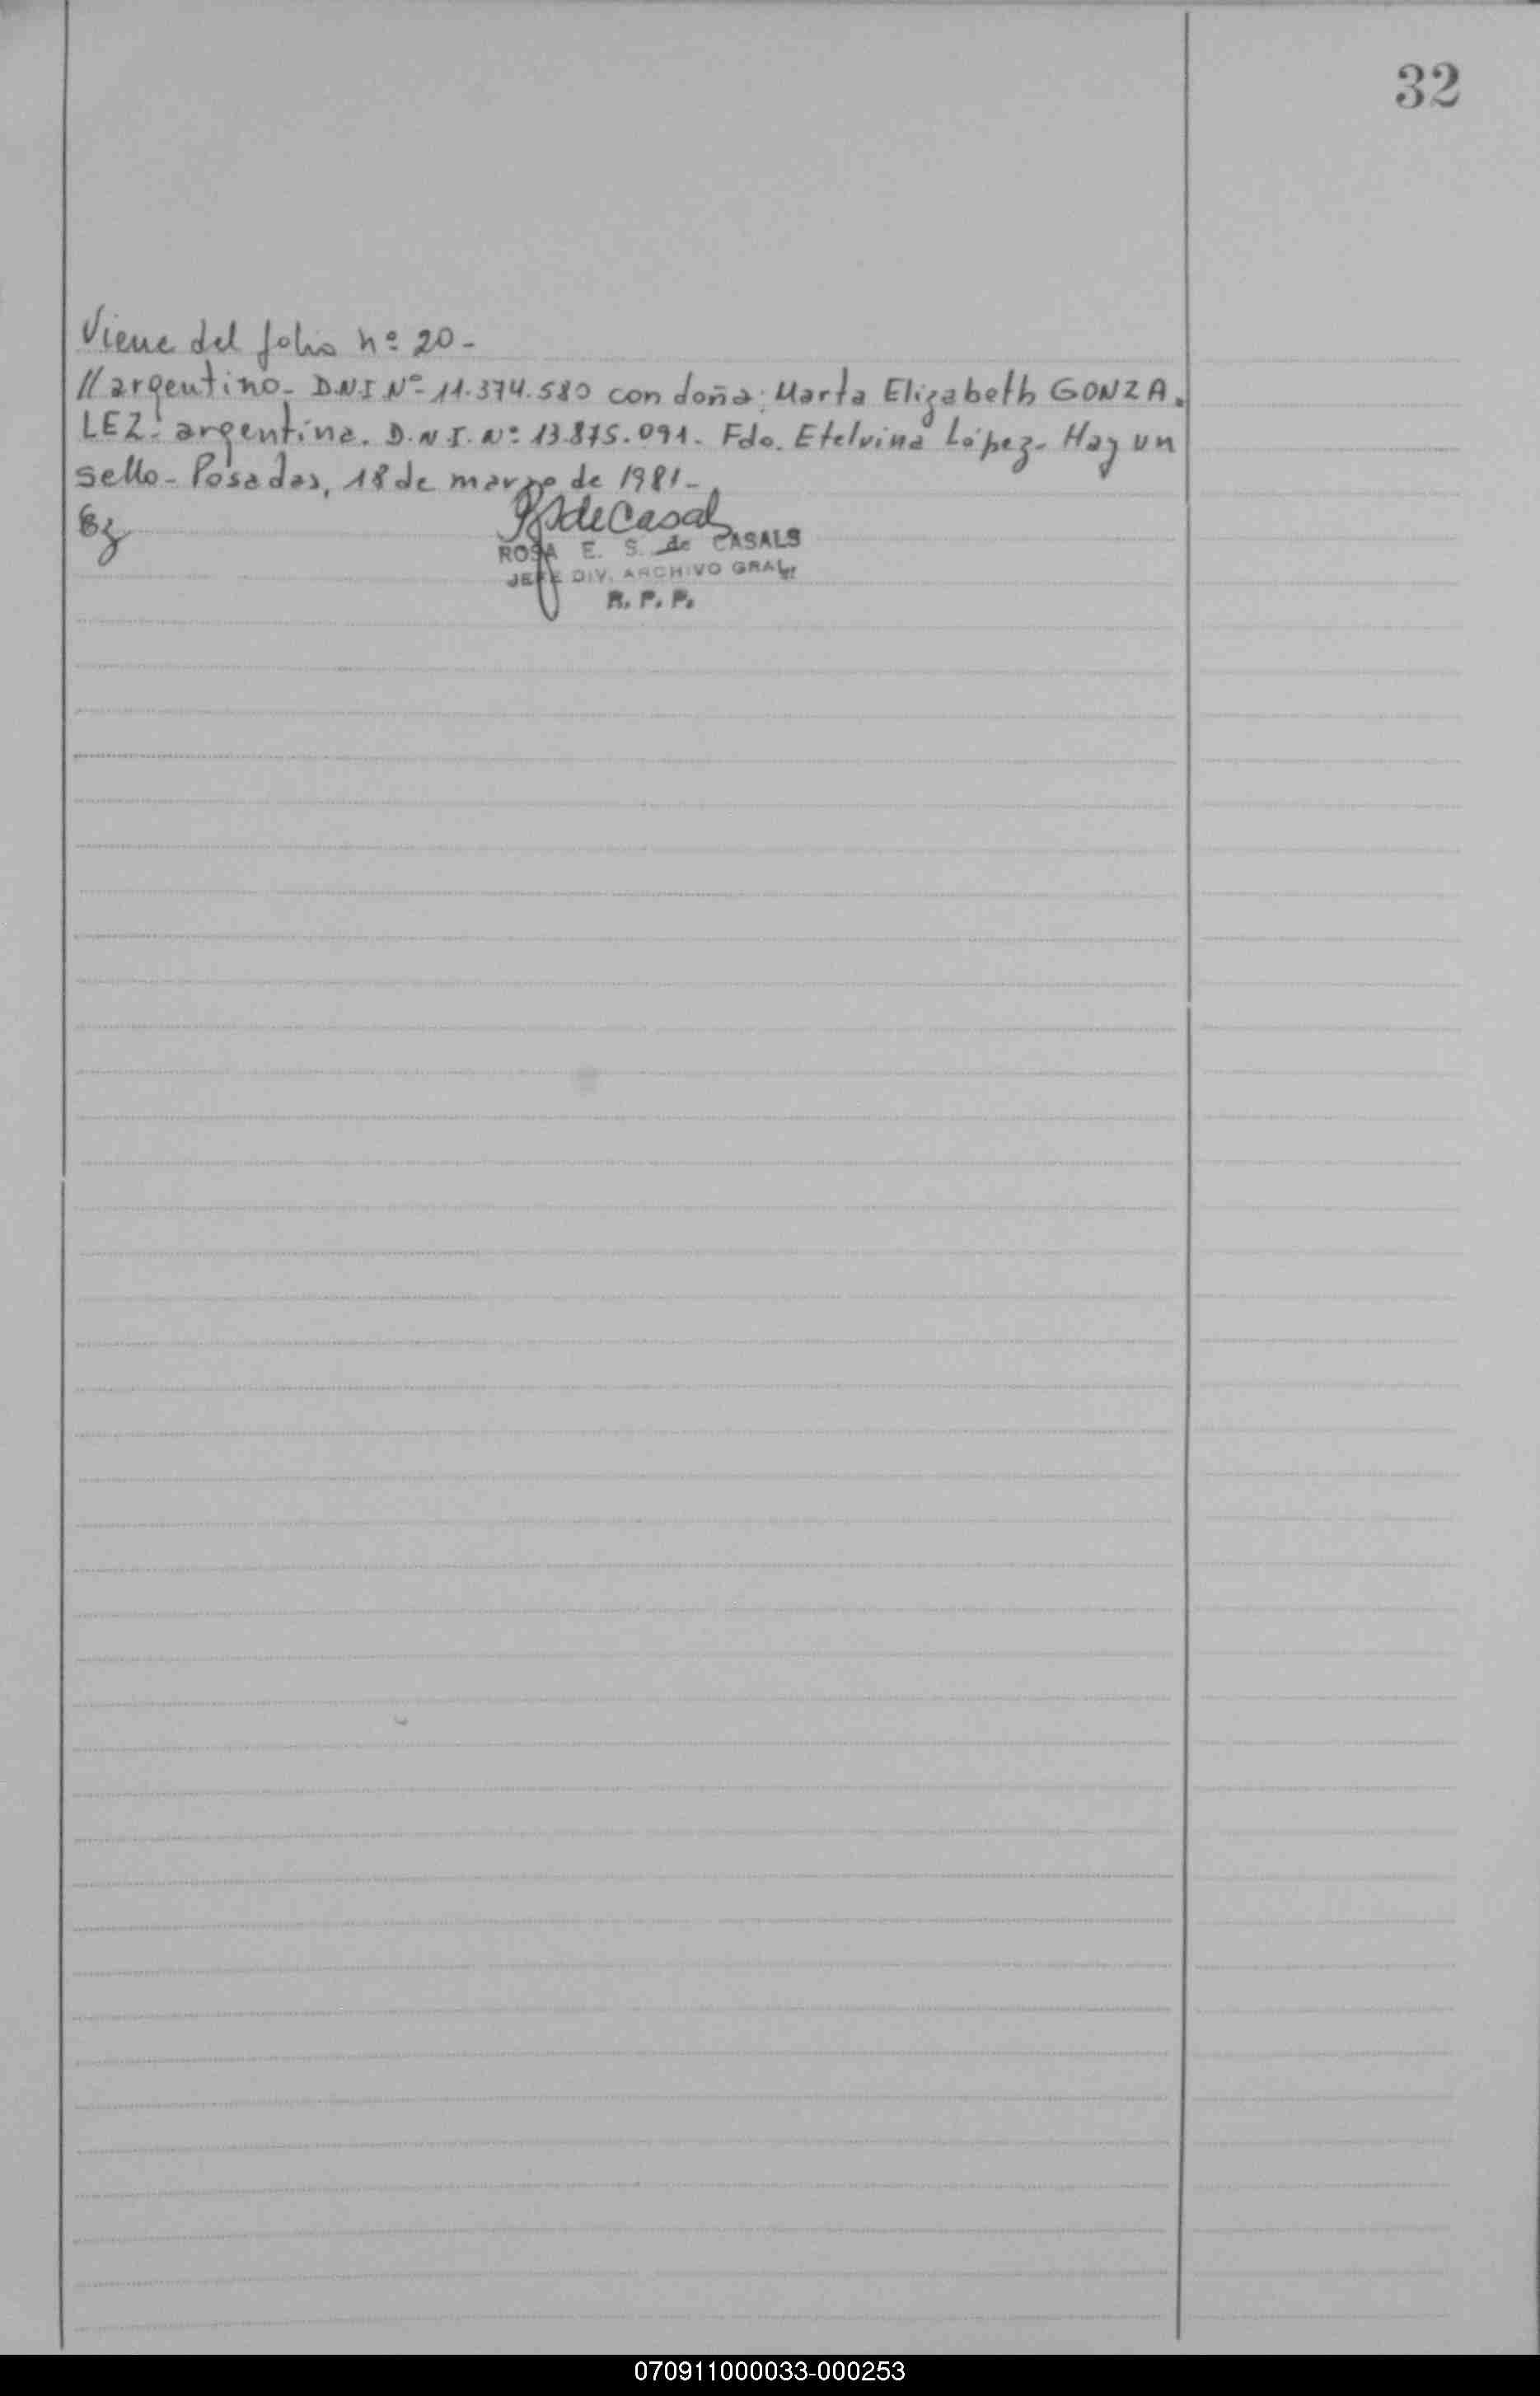 32
Viene del folio nº 20-
//argentino- D.N.I Nº- 11.374.580 con doña: Marta Elizabeth GONZA.
LEZ- argentina. D.N.I. Nº 13.875.091- Fdo. Etelvina López- Hay un
sello- Posadas, 18 de marzo de 1981-
de Casals
ROSA E. S. de CASALS
JEFE DIV. ARCHIVO GRAL.
R. P. P.
070911000033-000253